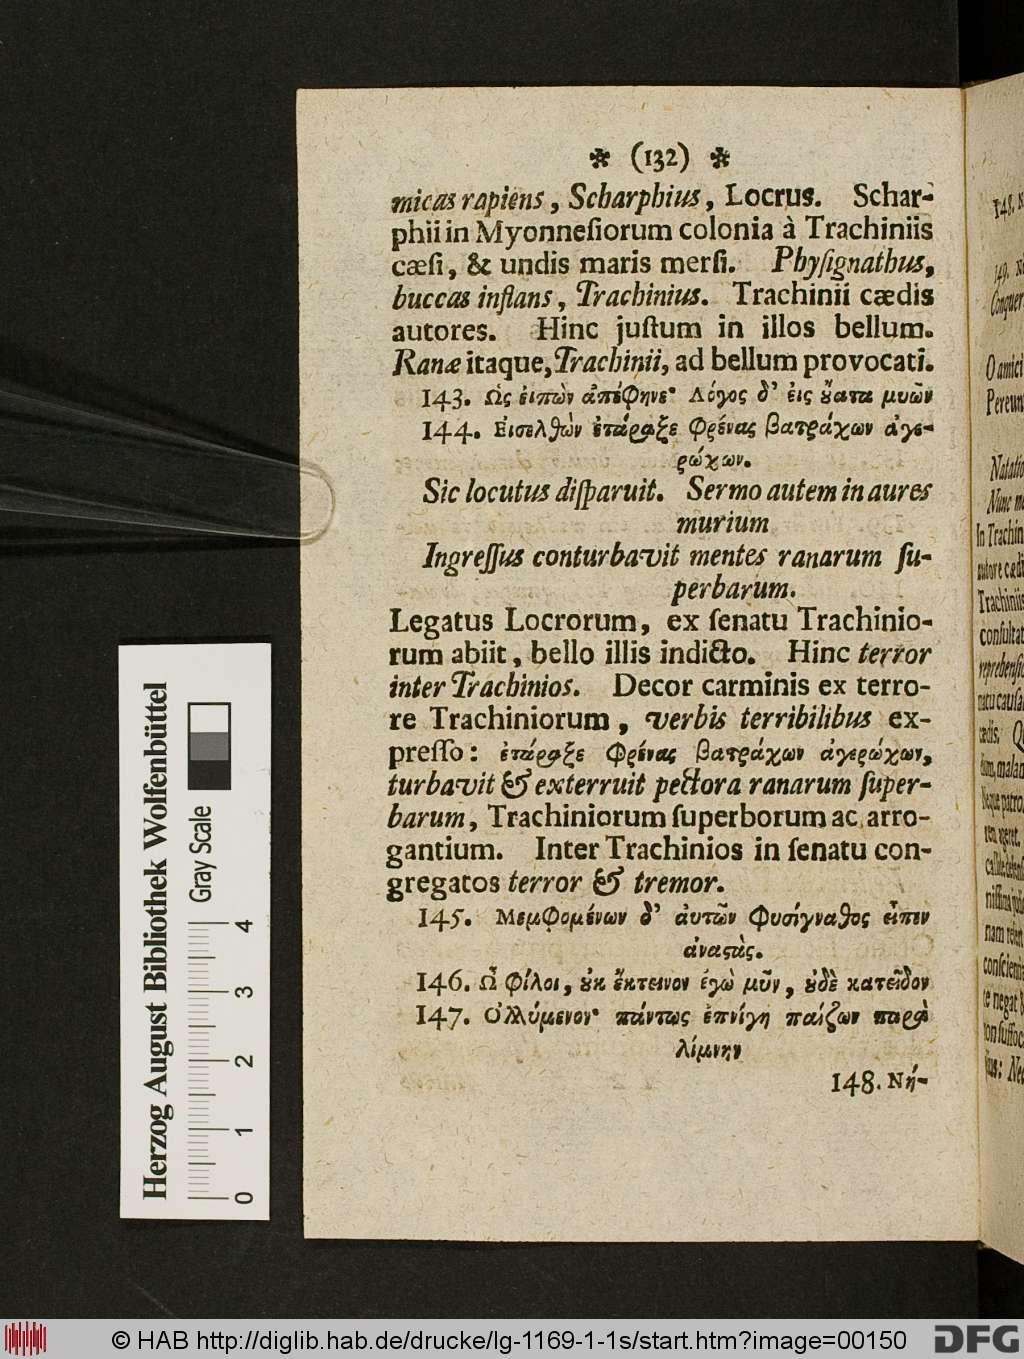 * (132) *
micas rapiens, Scharphius, Locrus. Schar-
phii in Myonnesiorum colonia à Trachiniis
cæsi, & undis maris mersi. Physignathus,
buccas inflans, Trachinius. Trachinii cædis
autores. Hinc justum in illos bellum.
Ranæ itaque, Trachinii, ad bellum provocati.
143. Ὡς εἰπὼν ἀπέφηνε· Λόγος δ' εἰς ȣ̓́ατα μυῶν
144. Εἰσελθὼν ἐτάραξε Φρένας βατράχων ἀγε-
ρώχων.
Sic locutus disparuit. Sermo autem in aures
murium
Ingressus conturbavit mentes ranarum su-
perbarum.
Legatus Locrorum, ex senatu Trachinio-
rum abiit, bello illis indicto. Hinc terror
inter Trachinios. Decor carminis ex terro-
re Trachiniorum, verbis terribilibus ex-
presso: ἐτάραξε Φρένας βατράχων ἀγερώχων,
turbavit & exterruit pectora ranarum super-
barum, Trachiniorum superborum ac arro-
gantium. Inter Trachinios in senatu con-
gregatos terror & tremor.
145. Μεμφομένων δ' ἀυτῶν Φυσίγναθος εἶπεν
ἀναϛάς.
146. Ὦ φίλοι, ȣκ ἔκτεινον ἐγὼ μῦν, ȣδὲ κατεῖδον
147. Ὀλλύμενον· πάντως ἐπνίγη παίζων παρὰ
λίμνην
148. Νή-
148. N
149. N
Conquer
O amici
Pereun
Natatio
Nunc me
In Trachin
autore cædi
Trachiniis
consultat
reprehensio
natu causa
cædis. Q
dium, malan
Neque patro
ten, veret.
nam refert
conscienti
te negat b
non suffoc
sius: Nec
Herzog August Bibliothek Wolfenbüttel
Gray Scale
0 1 2 3 4
© HAB http://diglib.hab.de/drucke/lg-1169-1-1s/start.htm?image=00150
DFG